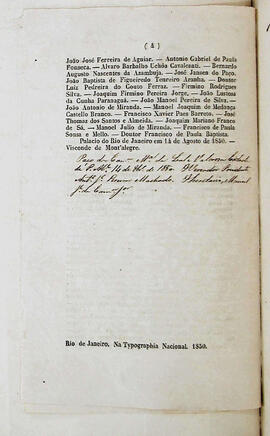 ( 4 )
João José Ferreira de Aguiar. — Antonio Gabriel de Paula
Fonseca. — Alvaro Barbalho Uchôa Cavalcanti. — Bernardo
Augusto Nascentes da Azambuja. — José Jansen do Paço.
João Baptista de Figueiredo Tenreiro Aranha. — Doutor
Luiz Pedreira do Couto Ferraz. — Firmino Rodrigues
Silva. — Joaquim Firmino Pereira Jorge. — João Lustosa
da Cunha Paranaguá. — João Manoel Pereira da Silva. —
João Antonio de Miranda. — Manoel Joaquim de Mendonça
Castello Branco. — Francisco Xavier Paes Barreto. — José
Thomaz dos Santos e Almeida. — Joaquim Mariano Franco
de Sá. — Manoel Julio de Miranda. — Francisco de Paula
Sousa e Mello. — Doutor Francisco de Paula Baptista.
Palacio do Rio de Janeiro em 14 de Agosto de 1850. —
Visconde de Mont'alegre.
Paço da
de 14 de 1850.
Machado. Secretario, Manoel
Rio de Janeiro. Na Typographia Nacional. 1850.